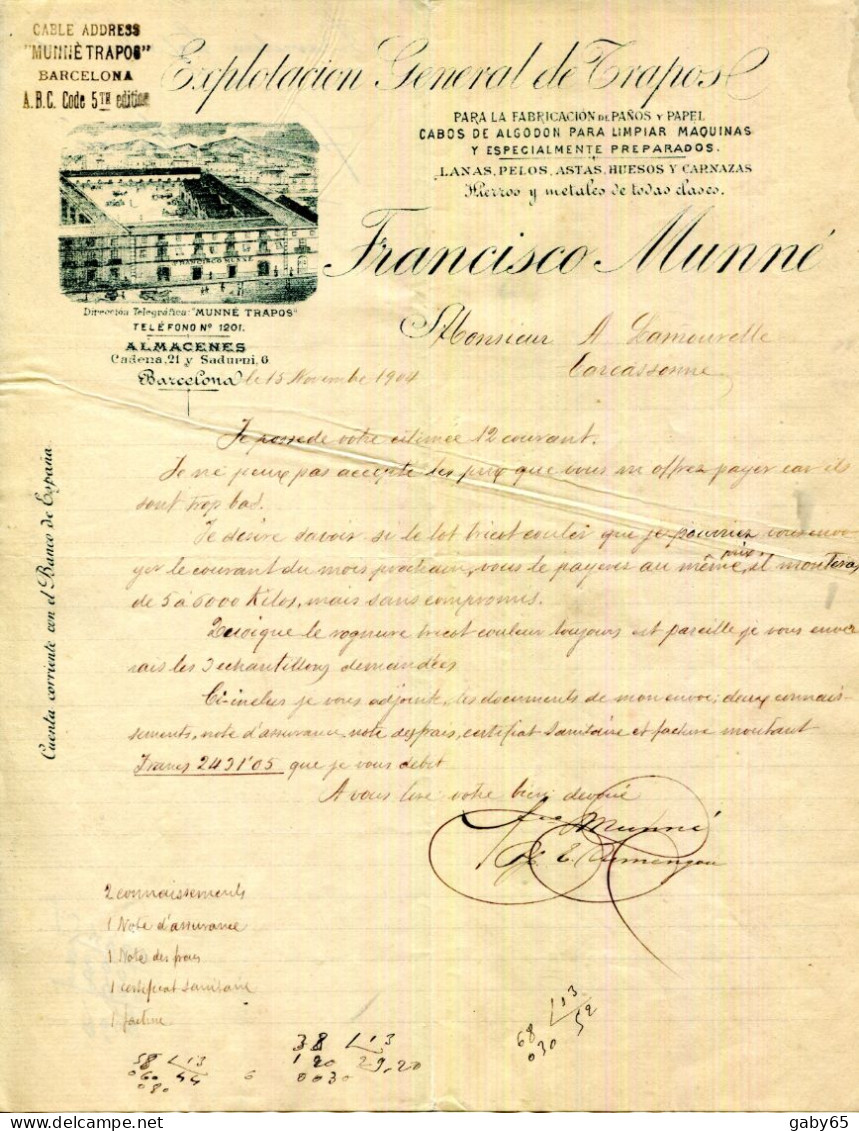 CABLE ADDRESS
"MUNNÈ TRAPOS"
BARCELONA
A.B.C. Code 5TH edition
Explotacion General de Trapos
PARA LA FABRICACIÓN DE PAÑOS Y PAPEL
CABOS DE ALGODON PARA LIMPIAR MAQUINAS
Y ESPECIALMENTE PREPARADOS.
LANAS, PELOS, ASTAS, HUESOS Y CARNAZAS
Hierros y metales de todas clases.
Francisco Munné
FRANCISCO MUNNÉ
Dirección Telegráfica: "MUNNÉ TRAPOS"
TELÉFONO Nº 1201.
ALMACENES
Cadena, 21 y Sadurni, 6
Barcelona le 15 Novembre 1904
Monsieur A Lamourelle
Carcassonne
Cuenta corriente con el Banco de España
Je possede votre estimée 12 courant.
Je ne peux pas accepte les prix que vous m offrez payer car ils
sont trop bas.
Je désire savoir si le lot tricot couleur que je pourrien vous envo
yer le courant du mois prochain, vous le payeres au même prix, il monteras
de 5 à 6000 Kilos, mais sans compromis.
Quoique le rognure tricot couleur toujours est pareille je vous enver
rais les 3 echantillons demandées
Ci-inclus je vous adjoint, les documents de mon envoi; deux connais-
sements, note d'assurance, note des frais, certificat sanitaire et facture montant
Francs 2431'05 que je vous debit
A vous lire votre bien devoué
Fco Munné
2 connaissements
1 Note d'assurance
1 Note des frais
1 certificat sanitaire
1 facture
58 113
060 44
080
6
38 113
120 29,20
0030
68 113
030 52
gaby65